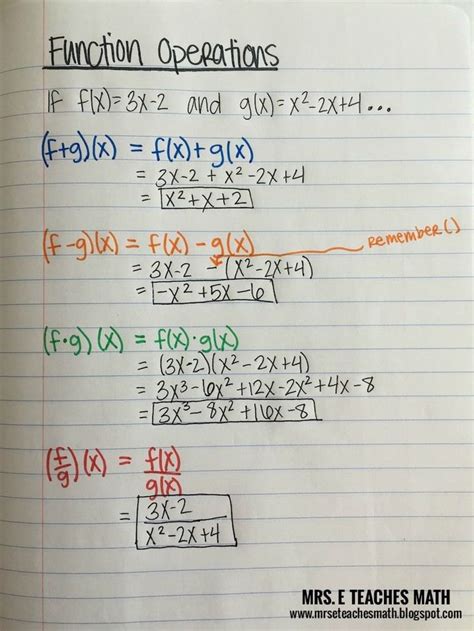 Function Operations
If f(x)=3x-2 and g(x)=x²-2x+4...
(f+g)(x) = f(x)+g(x)
= 3x-2 + x²-2x+4
= x²+x+2
(f-g)(x) = f(x)-g(x)
remember ()
= 3x-2 -(x²-2x+4)
= -x²+5x-6
(f·g)(x) = f(x)·g(x)
= (3x-2)(x²-2x+4)
= 3x³-6x²+12x-2x²+4x-8
= 3x³-8x²+16x-8
(f/g)(x) = f(x)/g(x)
= 3x-2/x²-2x+4
MRS. E TEACHES MATH
www.mrseteachesmath.blogspot.com